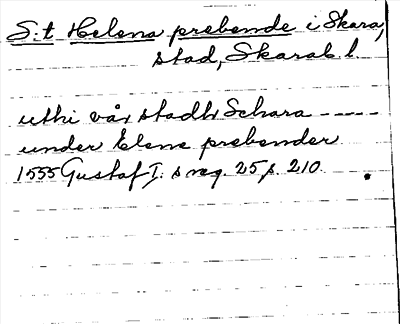 S:t Helena prebende i Skara,
stad, Skarab l.
uthi vår stadh Schara - - - -
under Elene prebender
1555 Gustaf I:s reg. 25, s. 210.